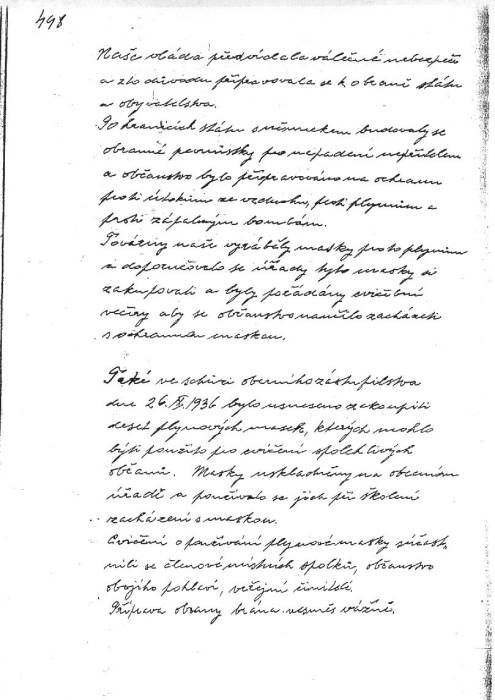 498
Naše vláda předvídala válečné nebezpečí
a z to důvodu připravovala se k obraně státu
a obyvatelstva.
Po hranicích státu s německem budovaly se
obranné pevnůstky pro napadení nepřítelem
a občanstvo bylo připravováno na ochranu
proti útokům ze vzduchu, proti plynům a
proti zápalným bombám.
Továrny naše vyráběly masky proto plynům
a doporučovalo se úřady tyto masky si
zakupovati a byly pořádány cvičebné
večery aby se občanstvo naučilo zacházeti
s ochrannou maskou.
Také ve schůzi obecního zástupitelstva
dne 26. 1936 bylo usneseno zakoupiti
deset plynových masek, kterých mohlo
býti použito pro cvičení spolehlivých
občanů. Masky uskladněny na obecním
úřadě a používalo se jich při školení
zacházení s maskou.
Cvičení o používání plynové masky súčast-
nili se členové místních spolků, občanstvo
obojího pohlaví, veřejní činitelé.
Příprava obrany brána vesměs vážně.